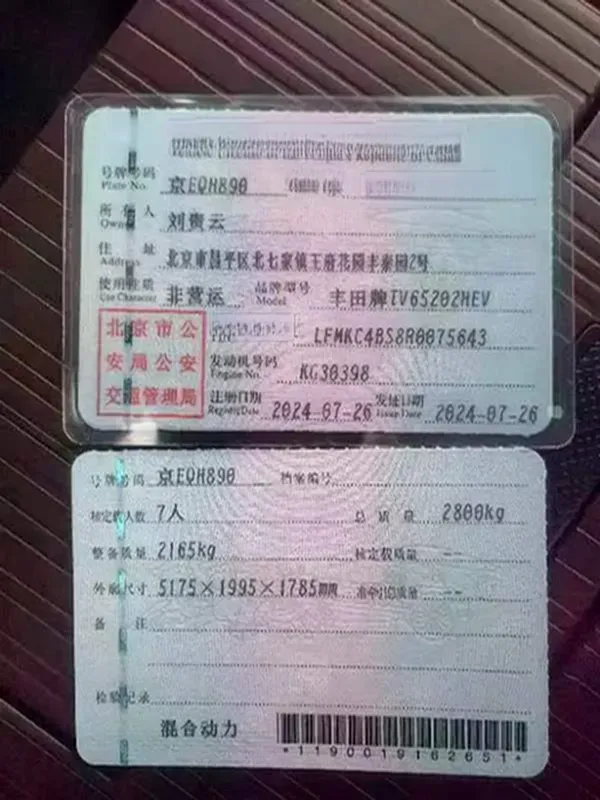 号牌号码 京EQH890
Plate No.
所有人 刘贵云
Owner
住址 北京市昌平区北七家镇王府花园丰泰园2号
Address
使用性质 非营运 品牌型号 丰田牌TV65202HEV
Use Character Model
北京市公安局公安交通管理局
LFMKC4BS8R0075643
发动机号码 KG30398
Engine No.
注册日期 2024-07-26 发证日期 2024-07-26
Register Date Issue Date
号牌号码 京EQH890 档案编号
核定载人数 7人 总质量 2800kg
整备质量 2165kg 核定载质量 --
外廓尺寸 5175×1995×1785mm 准牵引总质量 --
备注
检验记录
混合动力
*1190019162651*